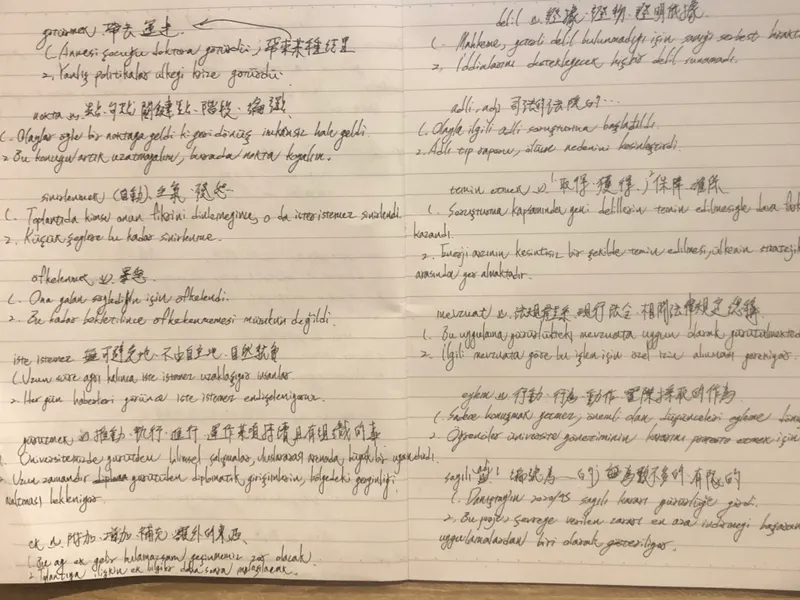 götürmek 帶去 運走
1. Annesi çocuğu doktora götürdü, 帶來某種結果
2. Yanlış politikalar ülkeyi krize götürdü.
nokta n. 點
1. Olaylar öyle bir noktaya geldi ki geri dönüş imkansız hale geldi.
2. Bu konuyu artık uzatmayalım, burada nokta koyalım.
sinirlenmek (自動) 生氣
1. Toplantıda kimse onun fikrini dinlemeyince, o da ister istemez sinirlendi
2. Küçük şeylere bu kadar sinirlenme.
öfkelenmek
1. Ona yalan söylediğin için öfkelendi.
2. Bu kadar bekletilince öfkelenmemesi mümkün değildi.
iste istemez 無可避免地・不由自主地・自然就會
1. Uzun süre aynı kalınca iste istemez uzaklaşıyor insanlar
2. Her gün haberleri görünce iste istemez endişeleniyoruz.
yürütmek 推動・執行・進行
1. Üniversitemizde yürütülen bilimsel çalışmalar, uluslararası arenada büyük bir uyandırdı.
2. Uzun zamandır yürütülen diplomatik girişimlerin, bölgedeki gerginliği
azaltması bekleniyor.
ek n. 附加・增加・補充・額外的東西
1. Bu ay ek gelir bulamazsam geçinmemiz zor olacak.
2. Toplantıya ilişkin ek bilgiler daha sonra paylaşılacak.
delil n. 證據・證物・證明依據
1. Mahkeme, yeterli delil bulunmadığı için sanığı serbest bıraktı
2. İddialarını destekleyecek hiçbir delil sunamadı.
adli, adj 司法的 法院的…
1. Olayla ilgili adli soruşturma başlatıldı.
2. Adli tıp raporu, ölüm nedenini kesinleştirdi.
temin etmek 取得・獲得・保障・確保
1. Soruşturma kapsamında yeni delillerin temin edilmesiyle dava
kazandı.
2. Enerji arzının kesintisiz bir şekilde temin edilmesi, ülkenin stratejik
arasında yer almaktadır.
mevzuat n. 現行法令・相關法律規定
1. Bu uygulama yürürlükteki mevzuata uygun olarak yürütülmekted
2. İlgili mevzuata göre bu işlem için özel izin alınması gerekiyor.
eylem n. 行動・行為・動作
1. Sadece konuşmak yetmez, önemli olan, düşünceleri eyleme
2. Öğrenciler üniversite yönetiminin kararını protesto etmek için
sayılı 編號為…的 為數不多的・有限的
1. Danıştayın sayılı kararı yürürlüğe girdi.
2. Bu proje, çevreye verilen zararı en aza indirmeyi
uygulamalardan biri olarak gösteriliyor.